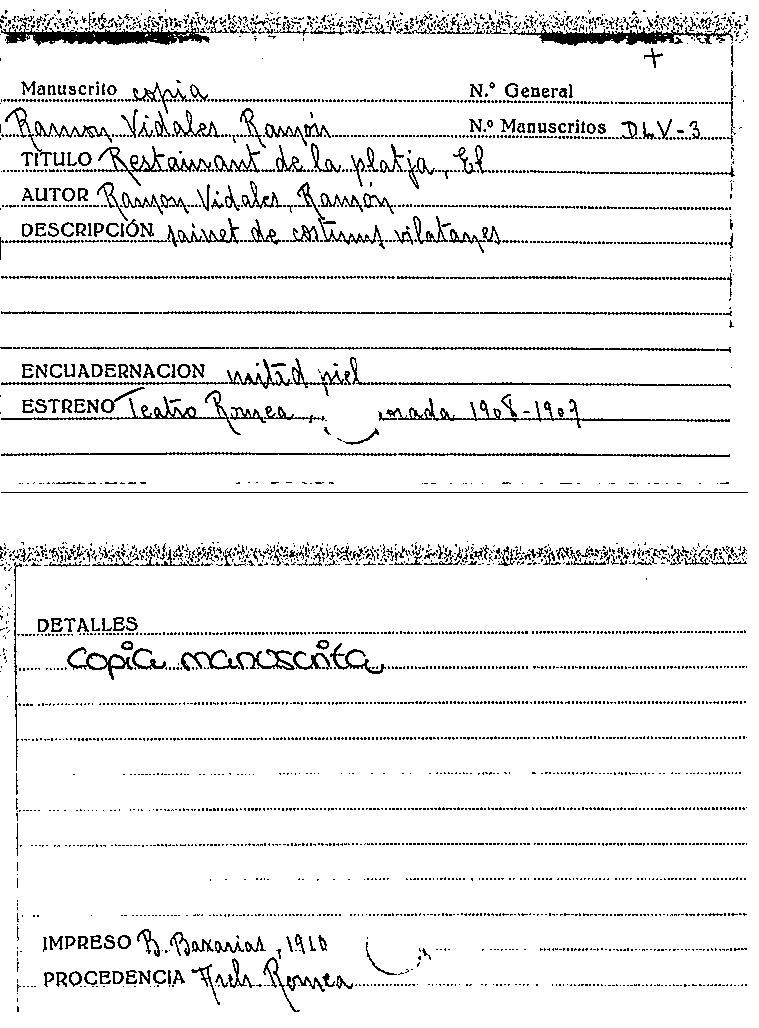 +
Manuscrito copia N.º General
Ramon Vidales, Ramón N.º Manuscritos DLV-3
TITULO Restaurant de la platja, El
AUTOR Ramon Vidales, Ramón
DESCRIPCIÓN sainet de costums vilatanes
ENCUADERNACION mitad piel
ESTRENO Teatro Romea, 1908-1909
DETALLES
Copia manuscrita
IMPRESO B. Baxarias, 1910
PROCEDENCIA Romea